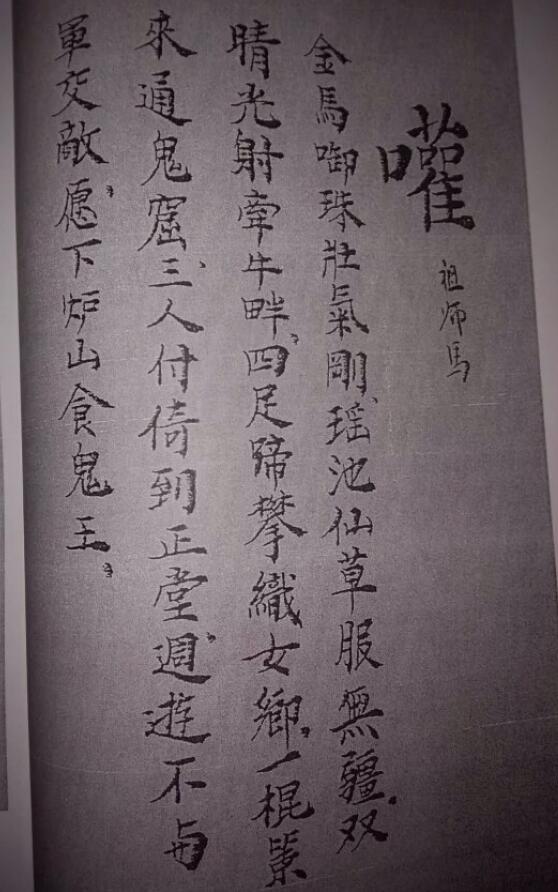 嚾
祖师馬
金馬啣珠壯氣剛、瑶池仙草服無疆、双
睛光射牽牛畔、四足蹄攀織女鄉、一棍
來通鬼窟、三人付倚到正堂、週遊不与
軍交敵、愿下炉山食鬼王、